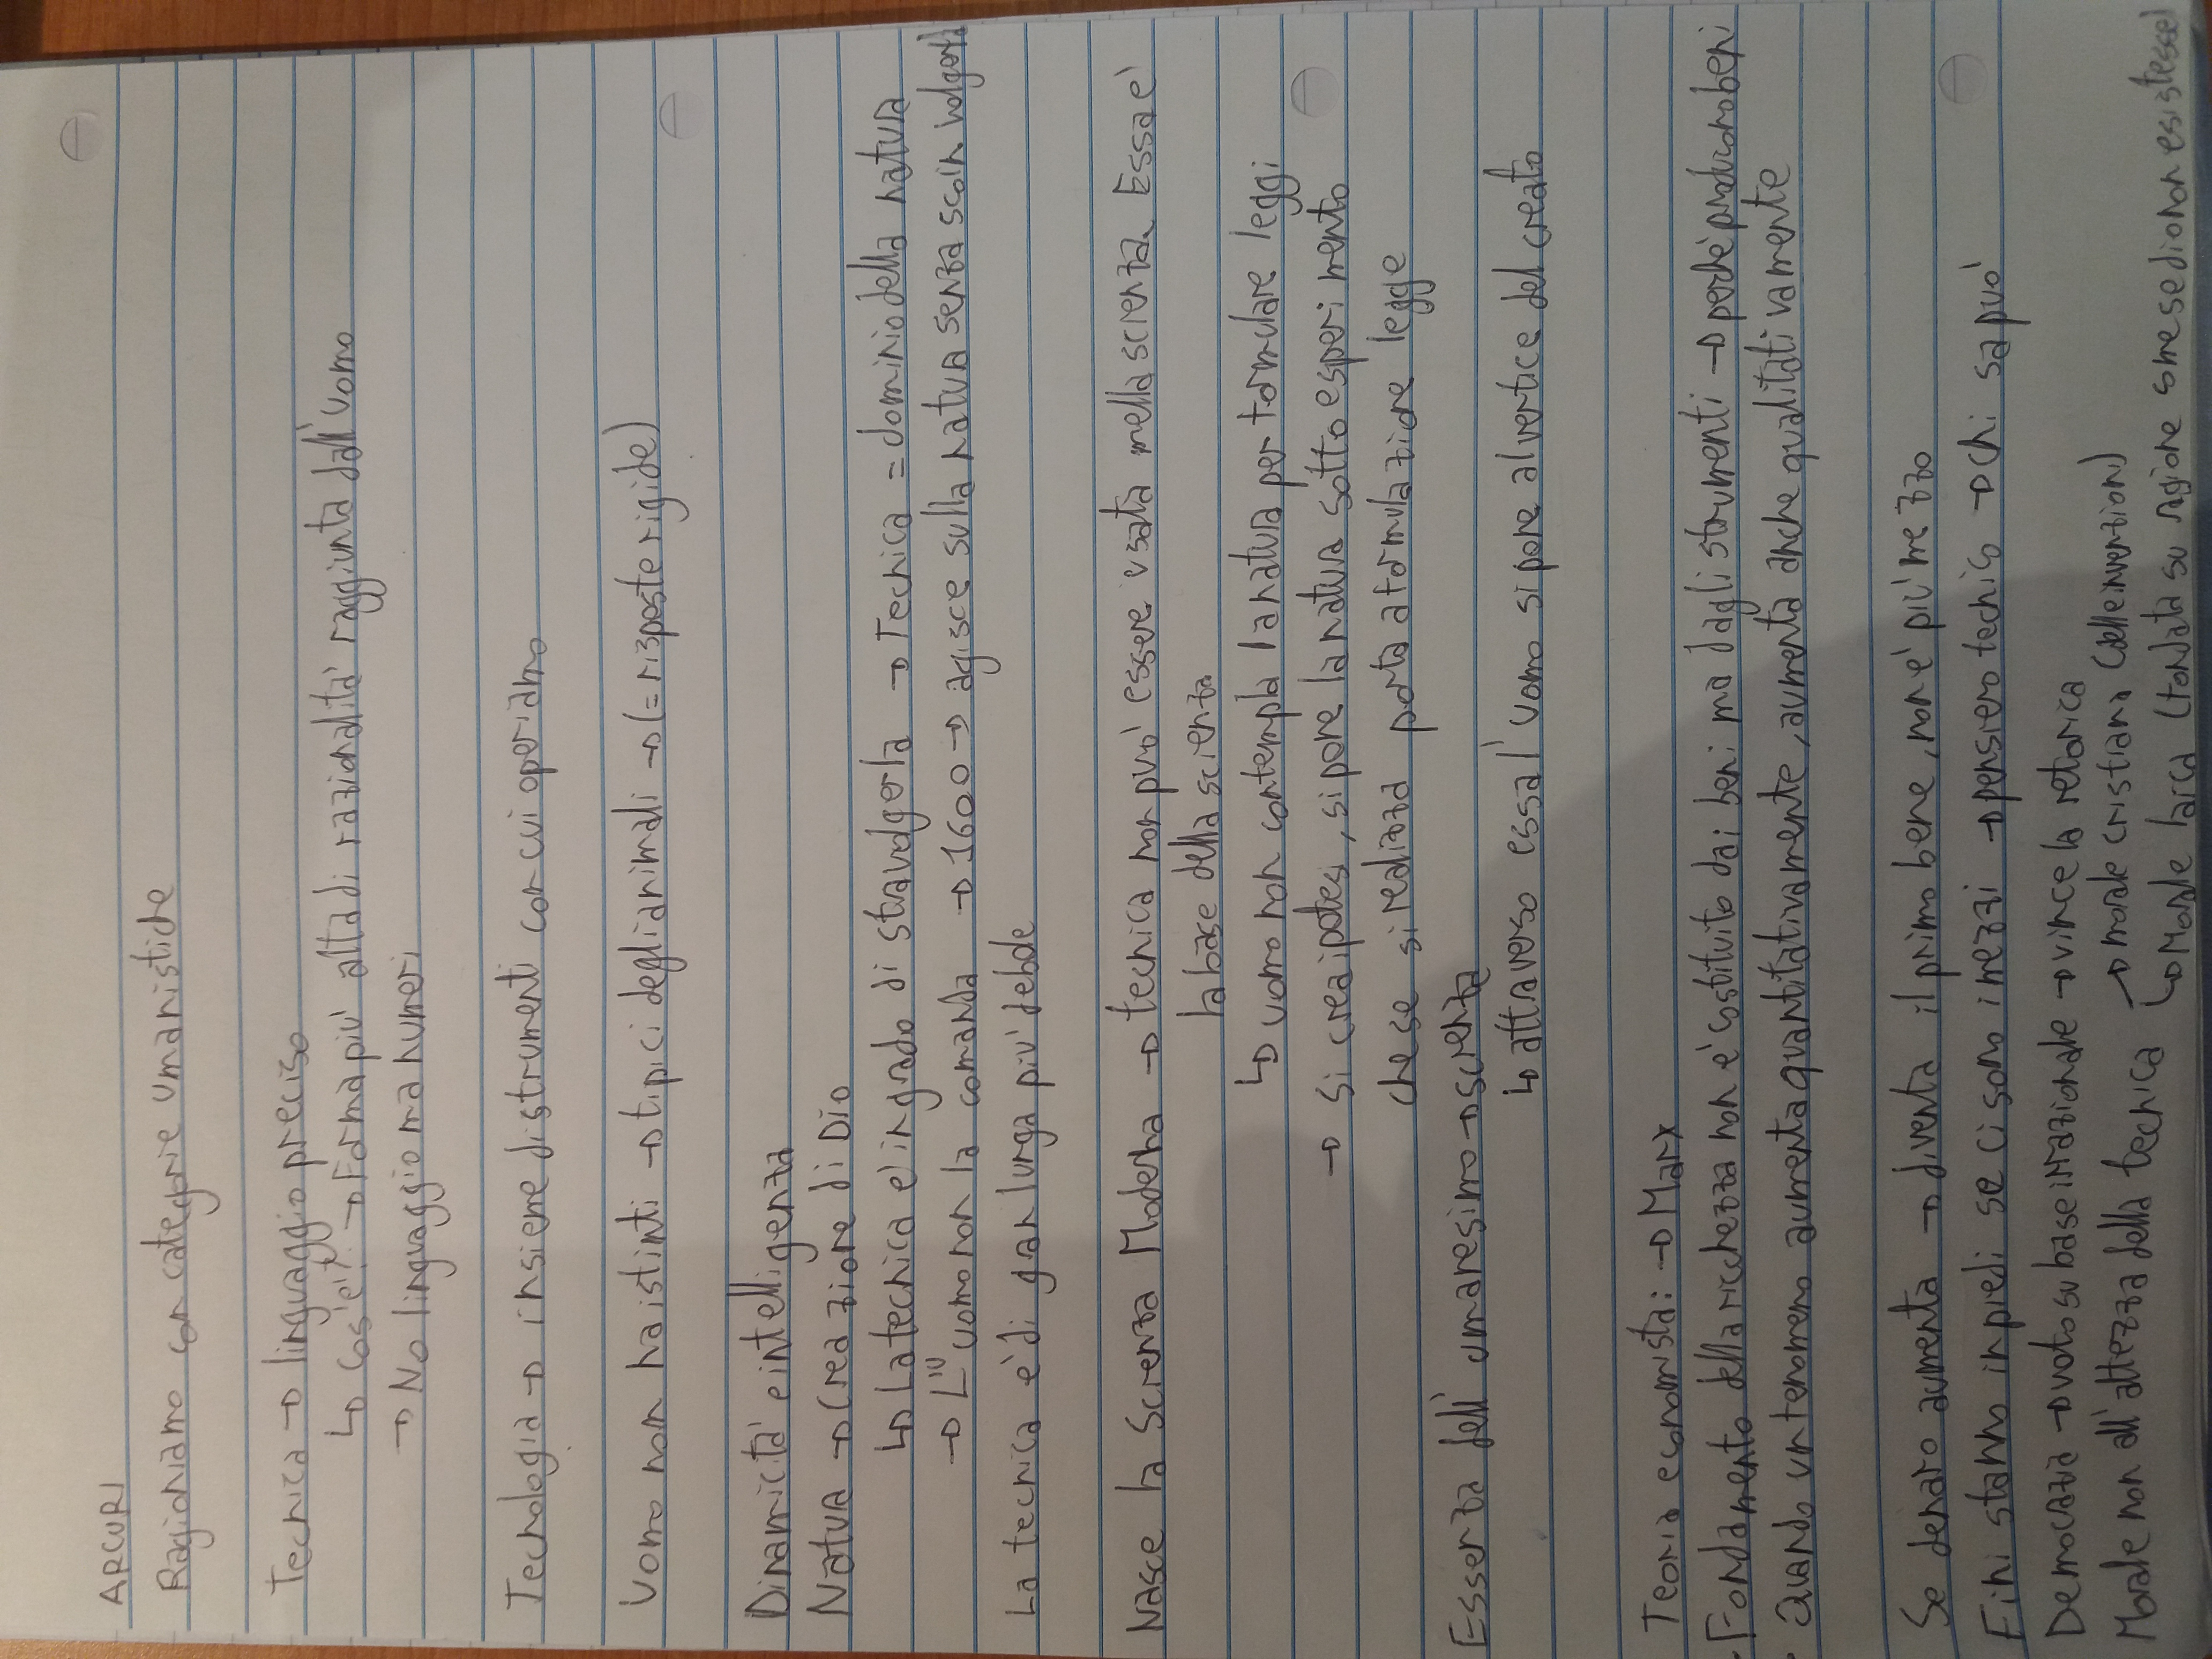 ARCURI
Ragioniamo con categorie umanistiche
Tecnica → linguaggio preciso
↳ cos'è? → Forma più alta di razionalità raggiunta dall'uomo
→ No linguaggio ma numeri
Tecnologia → insieme di strumenti con cui operiamo
Uomo non ha istinti → tipici degli animali → (= risposte rigide)
Dinamicità e intelligenza
Natura → Creazione di Dio
↳ La tecnica è in grado di stravolgerla → Tecnica = dominio della natura
→ L'uomo non la comanda → 1600 → agisce sulla natura senza scoinvolgerla
La tecnica è di gran lunga più debole
Nasce la Scienza Moderna → tecnica non può essere usata nella scienza. Essa è
la base della scienza
↳ uomo non contempla la natura per formulare leggi
→ si crea ipotesi, si pone la natura sotto esperimento
che se si realizza porta a formulazione legge
Essenza dell'umanesimo → scienza
↳ attraverso essa l'uomo si pone al vertice del creato
Teoria economista: → Marx
• Fondamento della ricchezza non è costituito dai beni ma dagli strumenti → perché producono beni
• Quando un fenomeno aumenta quantitativamente, aumenta anche qualitativamente
Se denaro aumenta → diventa il primo bene, non è più mezzo
Fini stanno in piedi se ci sono i mezzi → pensiero techis → chi sa può
Democrazia → voto su base irrazionale → vince la retorica
Morale non all'altezza della tecnica → morale cristiana (dell'intenzioni)
↳ Morale laica (fondata su ragione come se dio non esistesse)